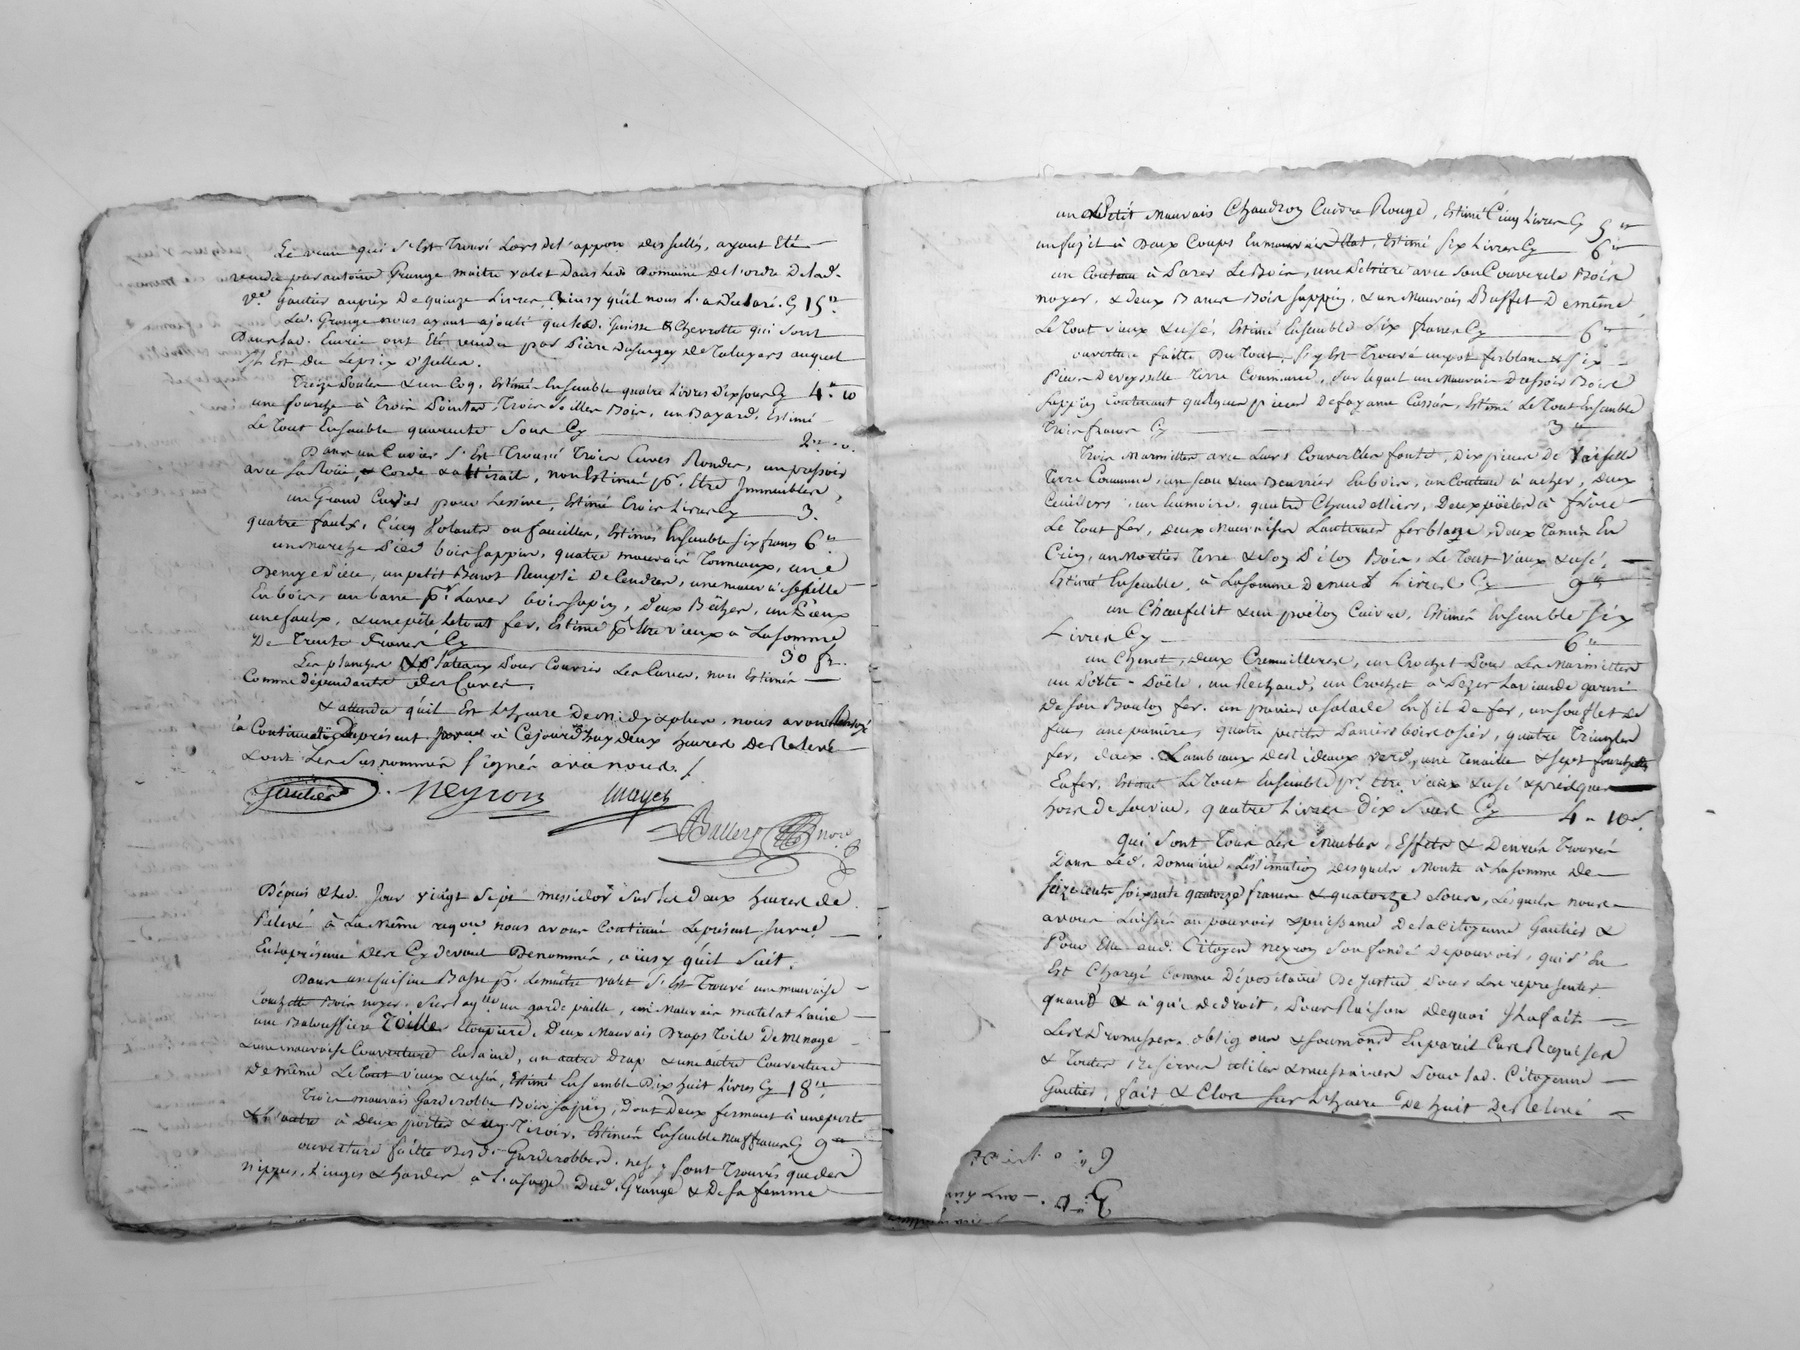 Le veau qui s'est trouvé lors de l'appon des sellés, ayant Eté
vendu par antoine Grange maitre valet dans led. Domaine de l'ordre de lad.
v.e Gautier au prix de quinze Livres, ainsy qu'il nous l'a déclaré. Cy 15
Led. Grange nous ayant ajouté que lad. Genisse & Chevrotte qui sont
Dans lad. Ecurie ont Eté vendu par Pierre de Taluyers auquel
Il Est du Le prix d'Icelles.
Treize Poules & un Coq, Estimé Ensemble quatre Livres dix sous Cy 4 . 10
une fourche à trois Pointes, Trois seilles Bois, un Bayard, Estimé
Le tout Ensemble quarante Sous Cy 2 . 0.
Dans un Cuvier s'Est Trouvé Trois Cuves Rondes, un pressoir
avec sa Roüe, & Corde & attirail, non Estimé pr. Etre Immeubles,
un Grand Cuvier pour Lessive, Estimé trois Livres Cy 3.
quatre faulx, Cinq Volants ou faucilles, Estimés Ensemble six francs 6
un marche Pied bois sappin, quatre mauvais Tonneaux, une
Demye Piece, un petit Barot Rempli De Cendres,
En bois, un banc pr. Laver bois sapin, deux Bêches, un
une faulx, & une pêle Le tout fer, Estimé pr. Etre vieux à La somme
De Trente Francs Cy 30 fr.
Les planches & Plateaux Pour Couvrir Les Cuves, non Estimés
Comme dépendants des Cuves.
& attendu qu'il Est L'heure De midy & plus, nous avons Renvoyé
la Continuation du présent à Cejourd'huy deux heures de Relevé
& ont Les Susnommés signés avec nous. /.
Gautier Neyron Mayet
Ballet nore
Dépuis & Led. Jour vingt Sept messidor Sur les Deux heures de
Relevé à La même reqte. nous avons Continué Le présent Inv.re
En la présence des Cy devant Dénommés, ainsy qu'il Suit.
Dans une Cuisine Basse pr. Le maitre valet s'Est Trouvé une mauvaise
Couchette Bois noyer, Sur lay.lle un garde paille, un Mauvais matelat Laine
une Baloussiere Toille Etoupière, Deux Mauvais Draps toile De menage
& une mauvaise Couverture En laine, un autre drap & une autre Couverture
De même Le tout vieux & usés, Estimé Ensemble Dix huit Livres Cy 18
Trois mauvais Garderobbe Bois sapin, Dont Deux fermant à une porte
& L'autre à Deux portes & un Tiroir, Estimés Ensemble neuf francs Cy 9
ouverture faitte desd. Garderobbes, ne s'y sont Trouvés que des
nippes, Linges & hardes à L'usage Dud. Grange & De sa femme
un Petit Mauvais Chaudron Cuivre Rouge, Estimé Cinq Livres Cy 5
un fusil à Deux Coups En mauvais Etat, Estimé Six Livres Cy 6
un Couteau à Parer Le Bois, une Pétriere avec son Couvercle Bois
noyer, & deux Bancs Bois sappin, & un Mauvais Buffet De même
Le tout vieux & usé, Estimé Ensemble Six francs Cy 6
ouverture faitte Du tout, s'y Est Trouvé un pot ferblanc & six
Pieces De veysselle terre Commune, sur lequel un Mauvais Dressoir Bois
sappin Contenant quelques pieces de fayance Cassées, Estimé Le tout Ensemble
Trois francs Cy 3
Trois Marmittes avec Leurs Couvercles fonte, Dix pieces De vaisselle
Terre Commune, un seau & un Beurrier En bois, un Couteau à acher, Deux
Cuilliers, un Lumoire, quatre Chandelliers, Deux poëles à frire
Le tout fer, Deux Mauvaises Lanternes ferblanc, Deux Tamis En
Crin, un Mortier terre & son Pilon Bois, Le tout vieux & usé,
Estimé Ensemble, à La somme De neuf Livres Cy 9
un Chaufelit & un poëlon Cuivre, Estimés Ensemble six
Livres Cy 6
un Chenet, deux Cremailleres, un Crochet Pour Les Marmittes
un Porte-Poële, un Rechaud, un Crochet à Pezer La viande garni
De son Boulon fer, un panier à salade En fil De fer, un soufflet de
feu, une panière, quatre petits Paniers bois osier, quatre Triangles
fer, Deux Lambeaux De Rideaux verd, une Tenaille & sept fourchettes
En fer, Estimé Le tout Ensemble pr. Etre vieux & usé & presque
hors de service, quatre Livres Dix Sous Cy 4 . 10 s
Qui sont Tous Les meubles, Effets & Denrées Trouvés
Dans Led. Domaine, L'Estimation desquels Monte à La somme de
seize cents soixante quatorze francs & quatorze Sous, Lesquels nous
avons Laissés au pouvoir & puissance De la Citoyenne Gautier &
Pour Elle aud. Citoyen neyron son fondé De pouvoir, qui s'En
Est Chargé Comme Dépositaire De Justice Pour Les representer
quand & à qui De droit, Pour Raison De quoi Il a fait
Les Promesses, obligons & soumons En pareil Cas Requises
& toutes Reserves utiles & necessaires Sous lad. Citoyenne
Gautier, fait & Clos sur L'heure De huit de Relevé